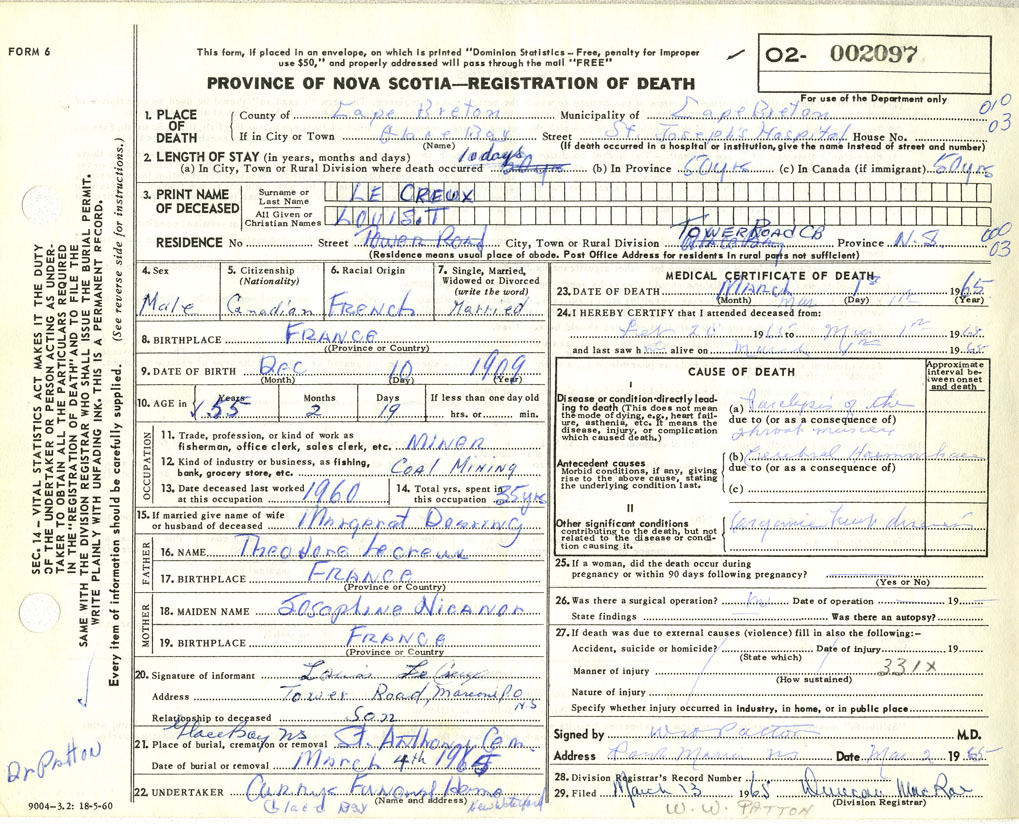 FORM 6
This form, if placed in an envelope, on which is printed "Dominion Statistics – Free, penalty for improper
use $50," and properly addressed will pass through the mail "FREE"
O2- 002097
PROVINCE OF NOVA SCOTIA—REGISTRATION OF DEATH
For use of the Department only
010
03
1. PLACE OF DEATH County of Cape Breton Municipality of Cape Breton
If in City or Town Glace Bay (Name) Street St. Joseph's Hospital House No.
(If death occurred in a hospital or institution, give the name instead of street and number)
2. LENGTH OF STAY (in years, months and days) 10 days
(a) In City, Town or Rural Division where death occurred (b) In Province 50 yrs (c) In Canada (if immigrant) 50 yrs
3. PRINT NAME OF DECEASED Surname or Last Name LE CREUX
All Given or Christian Names LOUIS. T
RESIDENCE No Street Tower Road City, Town or Rural Division Tower Road CB Glace Bay Province N.S.
000
03
(Residence means usual place of abode. Post Office Address for residents in rural parts not sufficient)
4. Sex Male
5. Citizenship (Nationality) Canadian
6. Racial Origin French
7. Single, Married, Widowed or Divorced (write the word) Married
8. BIRTHPLACE France (Province or Country)
9. DATE OF BIRTH Dec (Month) 10 (Day) 1909 (Year)
10. AGE in Years 55 Months 2 Days 19 If less than one day old hrs. or min.
OCCUPATION
11. Trade, profession, or kind of work as fisherman, office clerk, sales clerk, etc. MINER
12. Kind of industry or business, as fishing, bank, grocery store, etc. Coal Mining
13. Date deceased last worked at this occupation 1960
14. Total yrs. spent in this occupation 35 yrs
15. If married give name of wife or husband of deceased Margaret
FATHER
16. NAME Theodore LeCreux
17. BIRTHPLACE France (Province or Country)
MOTHER
18. MAIDEN NAME Josephine
19. BIRTHPLACE France (Province or Country)
20. Signature of informant Louis Le Creux
Address Tower Road, Marconi P.O N.S
Relationship to deceased Son
Glace Bay NS
21. Place of burial, cremation or removal St. Anthony Cem.
Date of burial or removal March 4th 1965
22. UNDERTAKER Curry's Funeral Home
(Name and address)
Glace Bay New Waterford
9004-3.2: 18-5-60
MEDICAL CERTIFICATE OF DEATH
23. DATE OF DEATH March (Month) Mar 1st (Day) 1st 1965 (Year)
24. I HEREBY CERTIFY that I attended deceased from:
Feb 20 1965 to Mar 1st 1965
and last saw him alive on March 1st 1965
CAUSE OF DEATH
Approximate interval between onset and death
I
Disease or condition directly leading to death (This does not mean the mode of dying, e.g., heart failure, asthenia, etc. It means the disease, injury, or complication which caused death.)
(a) Paralysis of the
due to (or as a consequence of)
throat muscles
Antecedent causes
Morbid conditions, if any, giving rise to the above cause, stating the underlying condition last.
(b) Cerebral Haemorrhage
due to (or as a consequence of)
(c)
II
Other significant conditions contributing to the death, but not related to the disease or condition causing it.
Organic heart disease
25. If a woman, did the death occur during pregnancy or within 90 days following pregnancy?
(Yes or No)
26. Was there a surgical operation? No Date of operation 19
State findings Was there an autopsy?
27. If death was due to external causes (violence) fill in also the following:–
Accident, suicide or homicide? (State which) Date of injury 19
Manner of injury (How sustained) 331X
Nature of injury
Specify whether injury occurred in industry, in home, or in public place
Signed by W W Patton M.D.
Address NS Date Mar 2 1965
28. Division Registrar's Record Number
29. Filed March 13 1965 Duncan MacRae
(Division Registrar)
W. W. PATTON
SEC. 14 – VITAL STATISTICS ACT MAKES IT THE DUTY
OF THE UNDERTAKER OR PERSON ACTING AS UNDER-
TAKER TO OBTAIN ALL THE PARTICULARS REQUIRED
IN THE "REGISTRATION OF DEATH" AND TO FILE THE
SAME WITH THE DIVISION REGISTRAR WHO SHALL ISSUE THE BURIAL PERMIT.
WRITE PLAINLY WITH UNFADING INK. THIS IS A PERMANENT RECORD.
Every item of information should be carefully supplied. (See reverse side for instructions.)
Dr Patton